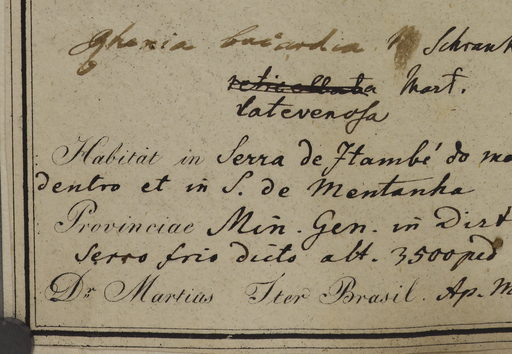 Schrank
Mart.
latevenosa
Habitat in Serra de Itambé do ma
dentro et in S. de Mentanha
Provinciae Min. Gen. in Dist
Serro frio dicto alt. 3500 ped
Dr Martius Iter Brasil. Ap. M